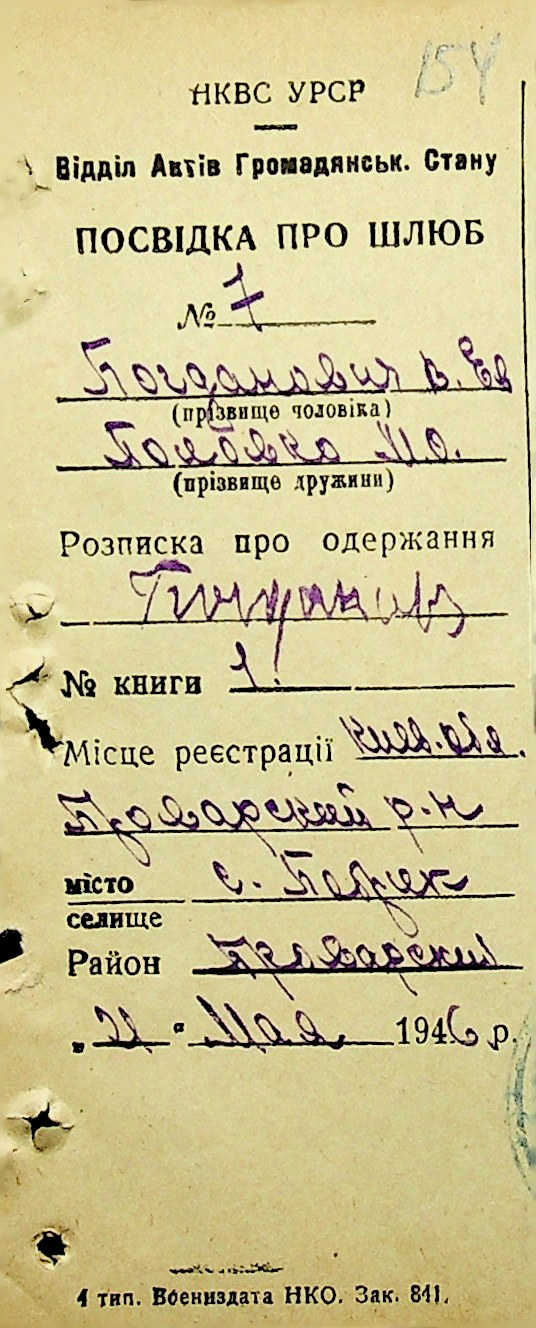 154
НКВС УРСР
Відділ Актів Громадянськ. Стану
ПОСВІДКА ПРО ШЛЮБ
№ 7
Богданович В. Ев
(прізвище чоловіка)
М. О.
(прізвище дружини)
Розписка про одержання
№ книги 1
Місце реєстрації Киев. обл.
Броварский р-н
місто с.
селище
Район Броварский
„21" Мая 1946 р.
4 тип. Воениздата НКО. Зак. 841.